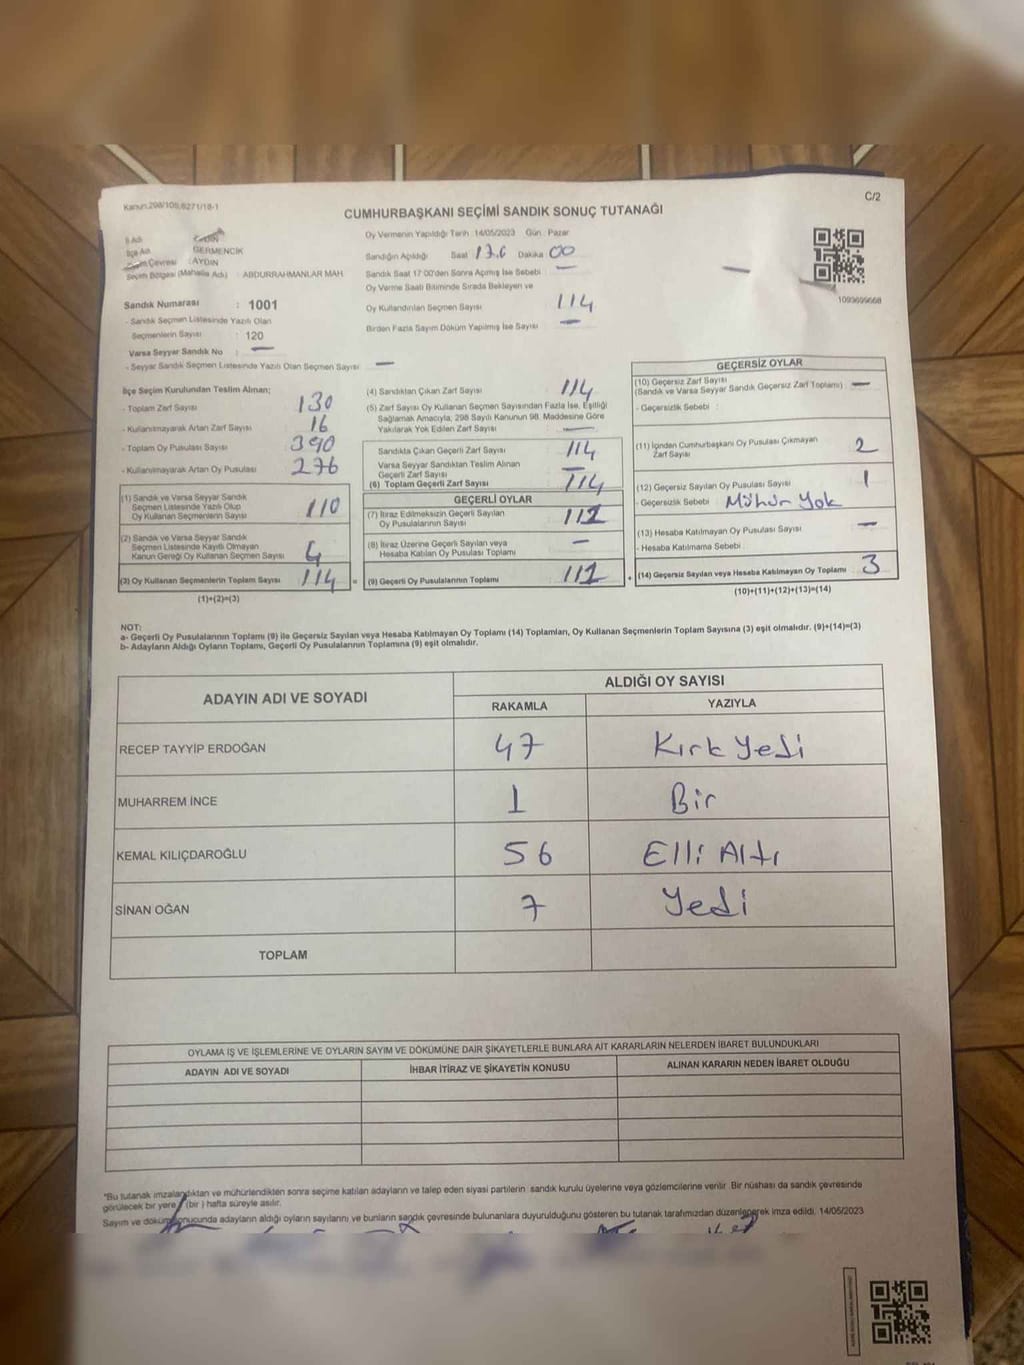 Kanun:298/105,6271/18-1
C/2
CUMHURBAŞKANI SEÇİMİ SANDIK SONUÇ TUTANAĞI
İl Adı : AYDIN
İlçe Adı : GERMENCİK
Seçim Çevresi : AYDIN
Seçim Bölgesi (Mahalle Adı) : ABDURRAHMANLAR MAH.
Sandık Numarası : 1001
- Sandık Seçmen Listesinde Yazılı Olan
Seçmenlerin Sayısı : 120
Varsa Seyyar Sandık No : —
- Seyyar Sandık Seçmen Listesinde Yazılı Olan Seçmen Sayısı : —
Oy Vermenin Yapıldığı Tarih :14/05/2023 Gün : Pazar
Sandığın Açıldığı Saat Dakika 00
Sandık Saat 17:00'den Sonra Açılmış İse Sebebi : —
Oy Verme Saati Bitiminde Sırada Bekleyen ve
Oy Kullandırılan Seçmen Sayısı : 114
Birden Fazla Sayım Döküm Yapılmış İse Sayısı : —
1093699668
İlçe Seçim Kurulundan Teslim Alınan;
- Toplam Zarf Sayısı : 130
- Kullanılmayarak Artan Zarf Sayısı : 16
- Toplam Oy Pusulası Sayısı : 390
- Kullanılmayarak Artan Oy Pusulası : 276
(1) Sandık ve Varsa Seyyar Sandık
Seçmen Listesinde Yazılı Olup
Oy Kullanan Seçmenlerin Sayısı : 110
(2) Sandık ve Varsa Seyyar Sandık
Seçmen Listesinde Kayıtlı Olmayan
Kanun Gereği Oy Kullanan Seçmen Sayısı : 4
(3) Oy Kullanan Seçmenlerin Toplam Sayısı : 114
(1)+(2)=(3)
(4) Sandıktan Çıkan Zarf Sayısı : 114
(5) Zarf Sayısı Oy Kullanan Seçmen Sayısından Fazla İse, Eşitliği
Sağlamak Amacıyla; 298 Sayılı Kanunun 98. Maddesine Göre
Yakılarak Yok Edilen Zarf Sayısı : —
Sandıkta Çıkan Geçerli Zarf Sayısı : 114
Varsa Seyyar Sandıktan Teslim Alınan
Geçerli Zarf Sayısı : —
(6) Toplam Geçerli Zarf Sayısı : 114
GEÇERLİ OYLAR
(7) İtiraz Edilmeksizin Geçerli Sayılan
Oy Pusulalarının Sayısı : 111
(8) İtiraz Üzerine Geçerli Sayılan veya
Hesaba Katılan Oy Pusulası Toplamı : —
(9) Geçerli Oy Pusulalarının Toplamı : 111
GEÇERSİZ OYLAR
(10) Geçersiz Zarf Sayısı
(Sandık ve Varsa Seyyar Sandık Geçersiz Zarf Toplamı) : —
- Geçersizlik Sebebi :
(11) İçinden Cumhurbaşkanı Oy Pusulası Çıkmayan
Zarf Sayısı : 2
(12) Geçersiz Sayılan Oy Pusulası Sayısı : 1
- Geçersizlik Sebebi : Mühür Yok
(13) Hesaba Katılmayan Oy Pusulası Sayısı : —
- Hesaba Katılmama Sebebi :
(14) Geçersiz Sayılan veya Hesaba Katılmayan Oy Toplamı : 3
(10)+(11)+(12)+(13)=(14)
NOT:
a- Geçerli Oy Pusulalarının Toplamı (9) ile Geçersiz Sayılan veya Hesaba Katılmayan Oy Toplamı (14) Toplamları, Oy Kullanan Seçmenlerin Toplam Sayısına (3) eşit olmalıdır. (9)+(14)=(3)
b- Adayların Aldığı Oyların Toplamı, Geçerli Oy Pusulalarının Toplamına (9) eşit olmalıdır.
ADAYIN ADI VE SOYADI
ALDIĞI OY SAYISI
RAKAMLA YAZIYLA
RECEP TAYYİP ERDOĞAN 47 Kırk Yedi
MUHARREM İNCE 1 Bir
KEMAL KILIÇDAROĞLU 56 Elli Altı
SİNAN OĞAN 7 Yedi
TOPLAM
OYLAMA İŞ VE İŞLEMLERİNE VE OYLARIN SAYIM VE DÖKÜMÜNE DAİR ŞİKAYETLERLE BUNLARA AİT KARARLARIN NELERDEN İBARET BULUNDUKLARI
ADAYIN ADI VE SOYADI İHBAR İTİRAZ VE ŞİKAYETİN KONUSU ALINAN KARARIN NEDEN İBARET OLDUĞU
*Bu tutanak imzalandıktan ve mühürlendikten sonra seçime katılan adayların ve talep eden siyasi partilerin sandık kurulu üyelerine veya gözlemcilerine verilir. Bir nüshası da sandık çevresinde
görülecek bir yere 1 (bir) hafta süreyle asılır.
Sayım ve döküm sonucunda adayların aldığı oyların sayılarını ve bunların sandık çevresinde bulunanlara duyurulduğunu gösteren bu tutanak tarafımızdan düzenlenerek imza edildi. 14/05/2023